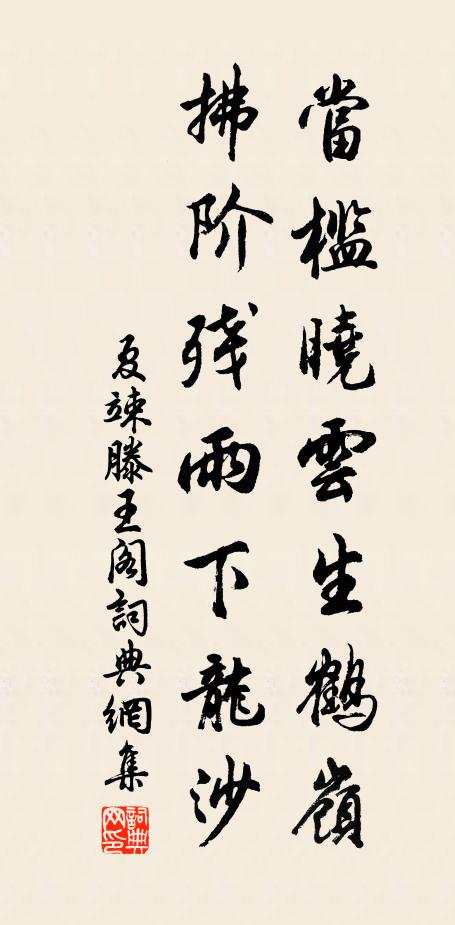 當檻曉雲生鶴嶺
拂阶残雨下龍沙
夏竦滕王阁詞典網集
詞典網印